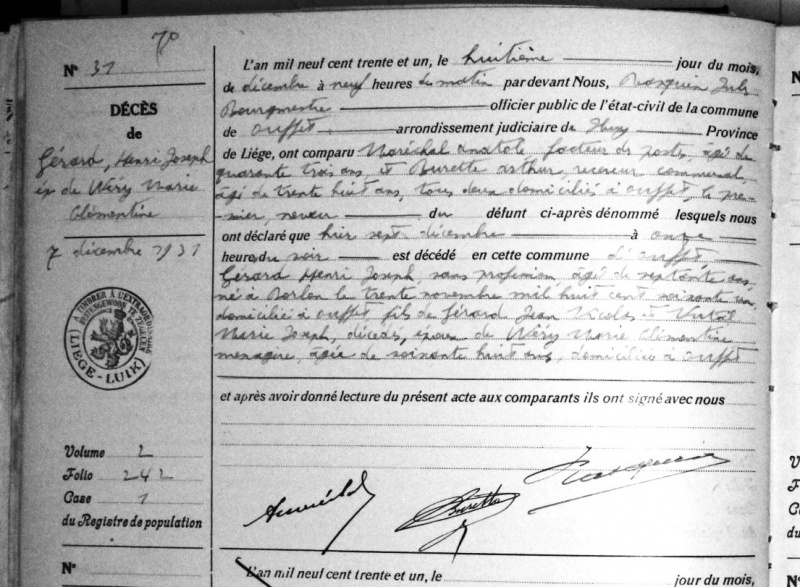 70
N° 31
DÉCÈS
de
Gérard, Henri Joseph
ép de Wéry Marie
Clémentine
7 décembre 1931
LIÉGE-LUIK
Volume 2
Folio 242
Case 1
du Registre de population
N°
L'an mil neuf cent trente et un, le huitième jour du mois,
de décembre à neuf heures du matin par devant Nous, Rasquin Jules
Bourgmestre officier public de l'état-civil de la commune
de Ouffet arrondissement judiciaire de Huy Province
de Liége, ont comparu Maréchal Anatole facteur des postes, âgé de
quarante trois ans, et Burette Arthur, receveur communal,
âgé de trente huit ans, tous deux domiciliés à Ouffet, le pre-
mier neveu du défunt ci-après dénommé lesquels nous
ont déclaré que hier sept décembre à onze
heures du soir est décédé en cette commune d'Ouffet
Gérard Henri Joseph sans profession âgé de septante ans,
né à Borlon le trente novembre mil huit cent soixante un
domicilié à Ouffet fils de Gérard Jean Nicolas et
Marie Joseph, décédés, époux de Wéry Marie Clémentine
ménagère, âgée de soixante huit ans, domiciliée à Ouffet
et après avoir donné lecture du présent acte aux comparants ils ont signé avec nous
Burette
L'an mil neuf cent trente et un, le jour du mois,